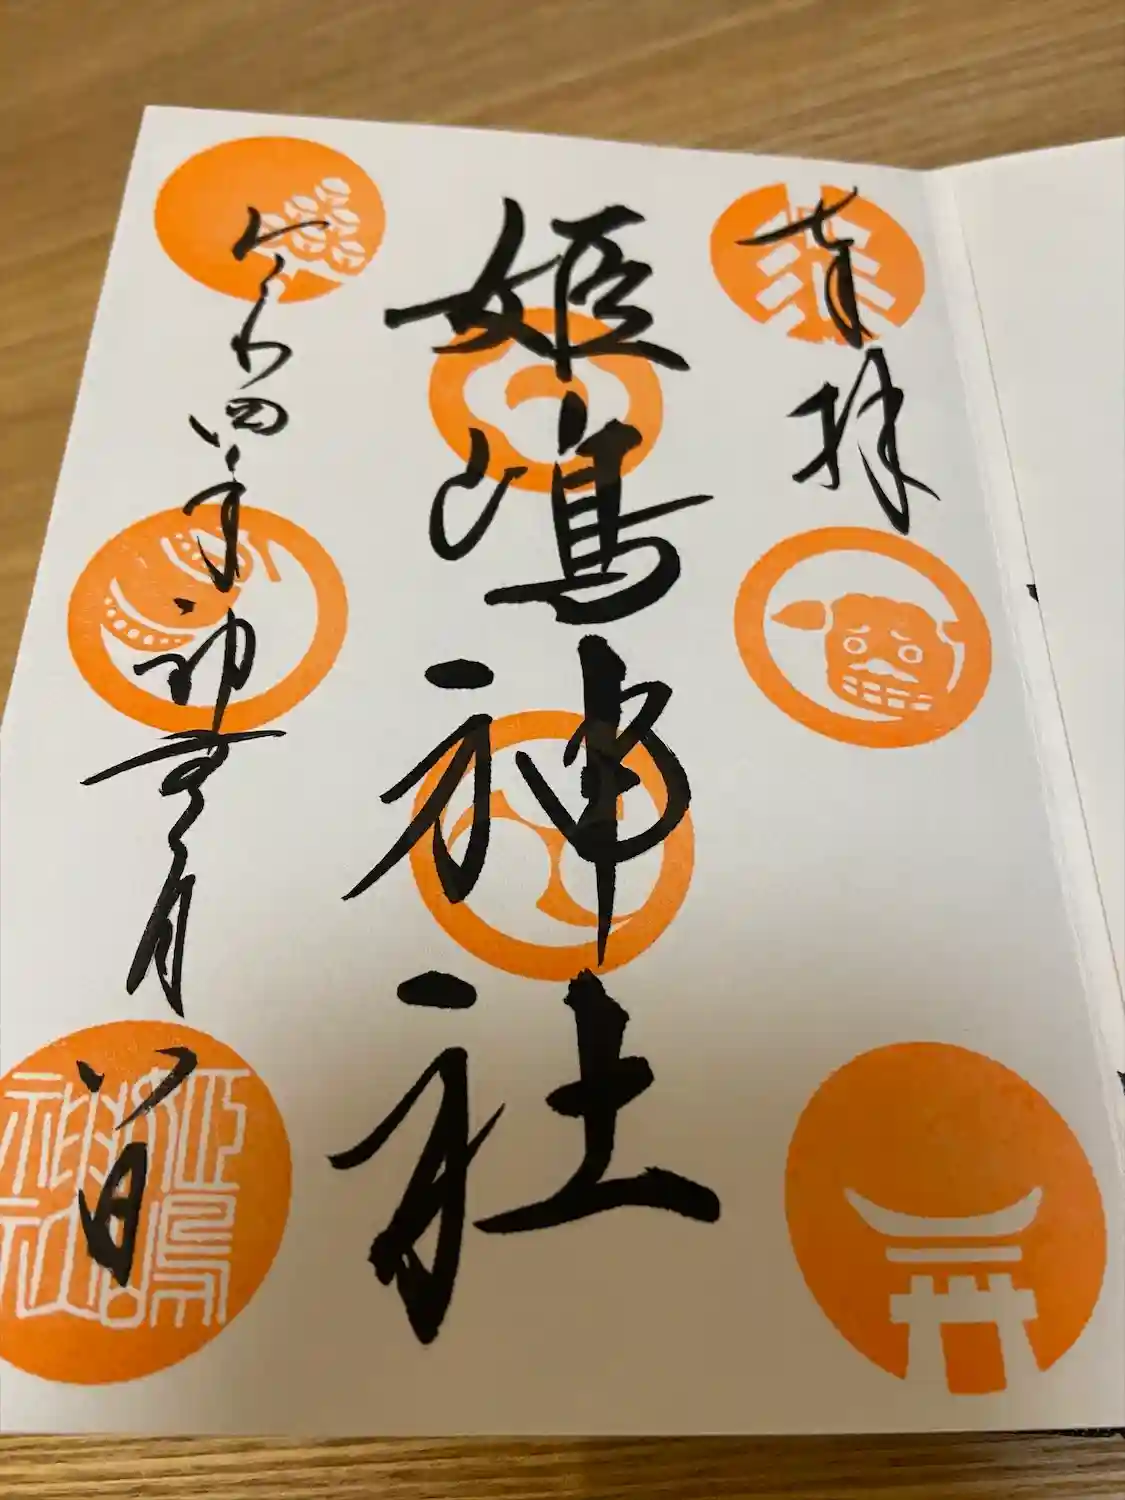 奉拝
姫嶋神社
令和四年神無月八日
姫嶋
神社